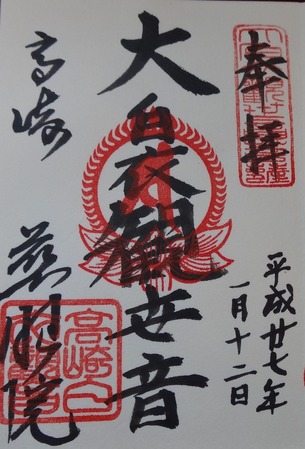 奉拝
平成廿七年
一月十二日
大白衣観世音
高崎
慈眼院